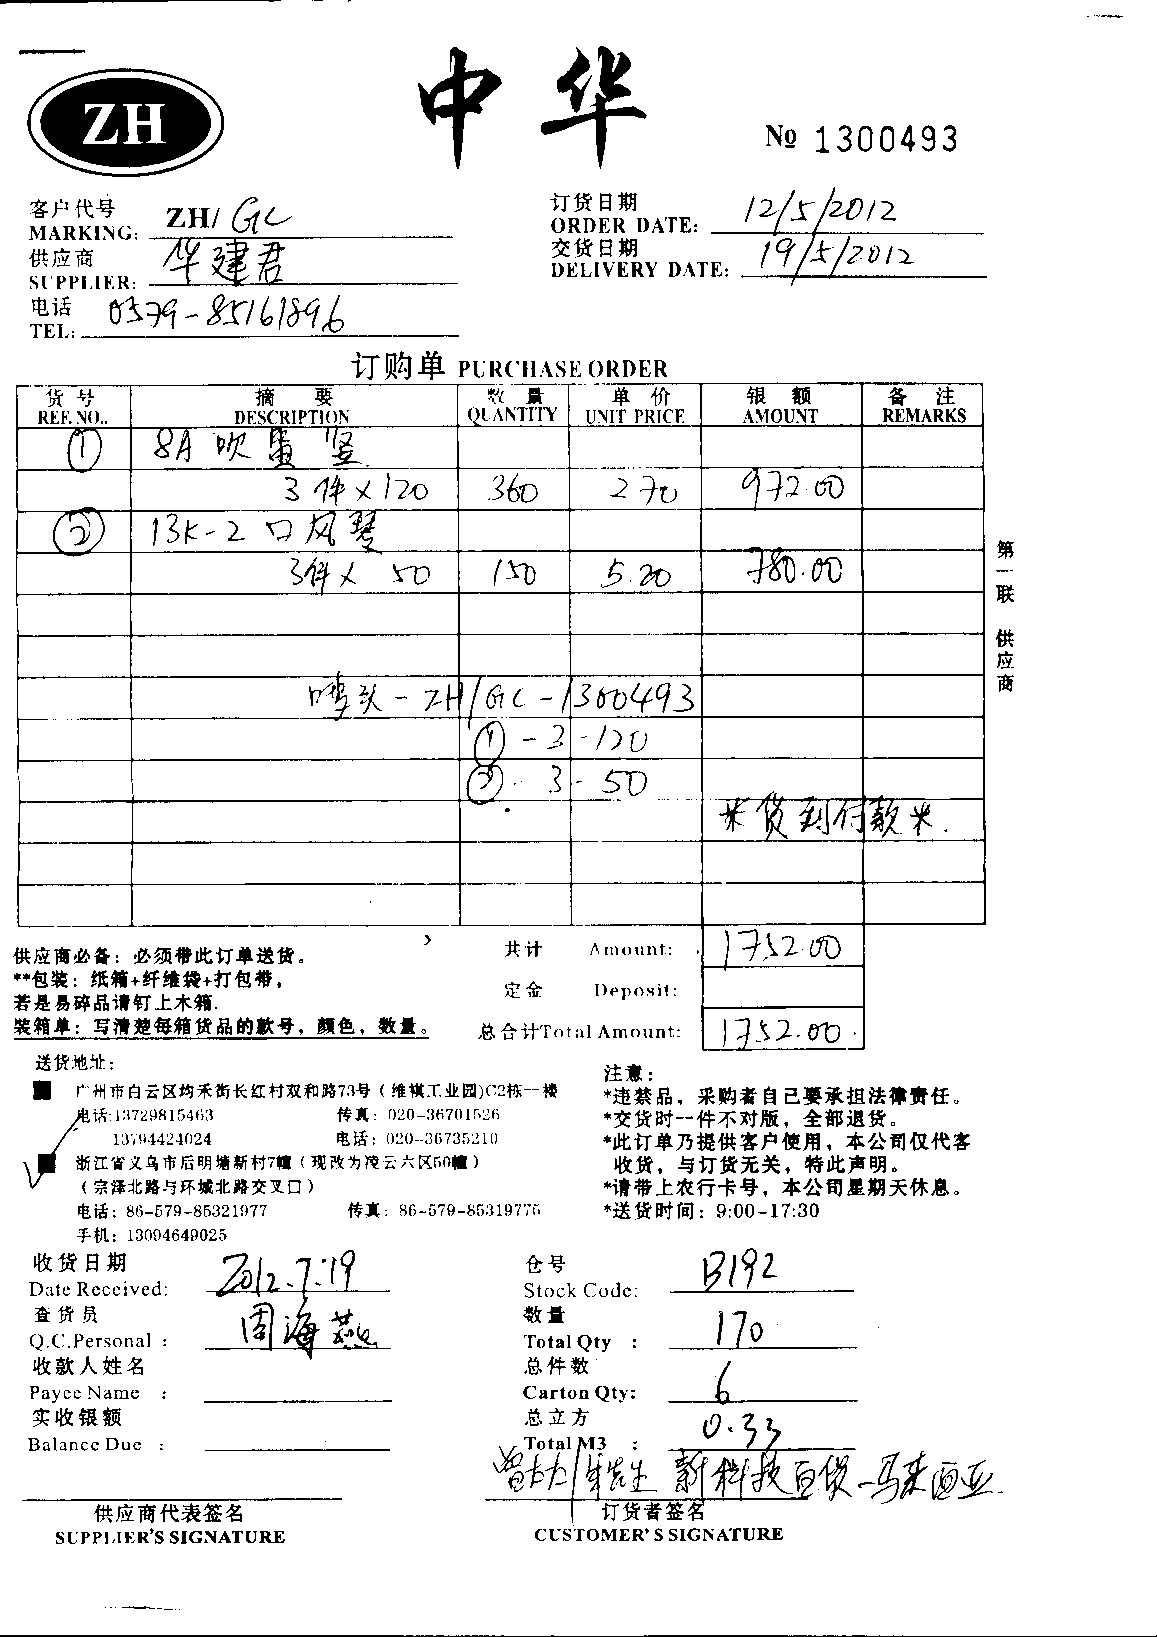 ZH
中华
№ 1300493
客户代号
MARKING: ZH/ GC
供应商
SUPPLIER: 华建君
电话
TEL: 0579-85161896
订货日期
ORDER DATE: 12/5/2012
交货日期
DELIVERY DATE: 19/5/2012
订购单 PURCHASE ORDER
货号 摘要 数量 单价 银额 备注
REF.NO.. DESCRIPTION QUANTITY UNIT PRICE AMOUNT REMARKS
① 8A 吹
3件×120 360 270 972.00
② 13K-2 口风琴
3件× 50 150 5.20 780.00
唛头-ZH/GC-1300493
① -3-120
② - 3 - 50
米货到付款米.
第一联 供应商
供应商必备：必须带此订单送货。
**包装：纸箱+纤维袋+打包带，
若是易碎品请钉上木箱.
装箱单：写清楚每箱货品的款号，颜色，数量。
共计 Amount: 1752.00
定金 Deposit:
总合计Total Amount: 1752.00
送货地址：
广州市白云区均禾街长红村双和路73号（维祺工业园)C2栋一楼
电话:13729815463 传真：020-36701526
13794424024 电话：020-36735210
浙江省义乌市后明塘新村7幢（现改为凌云六区50幢）
（宗泽北路与环城北路交叉口）
电话：86-579-85321977 传真：86-579-85319775
手机：13094649025
注意：
*违禁品，采购者自己要承担法律责任。
*交货时一件不对版，全部退货。
*此订单乃提供客户使用，本公司仅代客
收货，与订货无关，特此声明。
*请带上农行卡号，本公司星期天休息。
*送货时间：9:00-17:30
收货日期
Date Received: 2012.7.19
查货员
Q.C.Personal : 周海燕
收款人姓名
Payee Name :
实收银额
Balance Due :
仓号
Stock Code: B192
数量
Total Qty : 170
总件数
Carton Qty: 6
总立方
Total M3 : 0.33
先生 新科技百货-马来西亚.
供应商代表签名
SUPPLIER'S SIGNATURE
订货者签名
CUSTOMER'S SIGNATURE